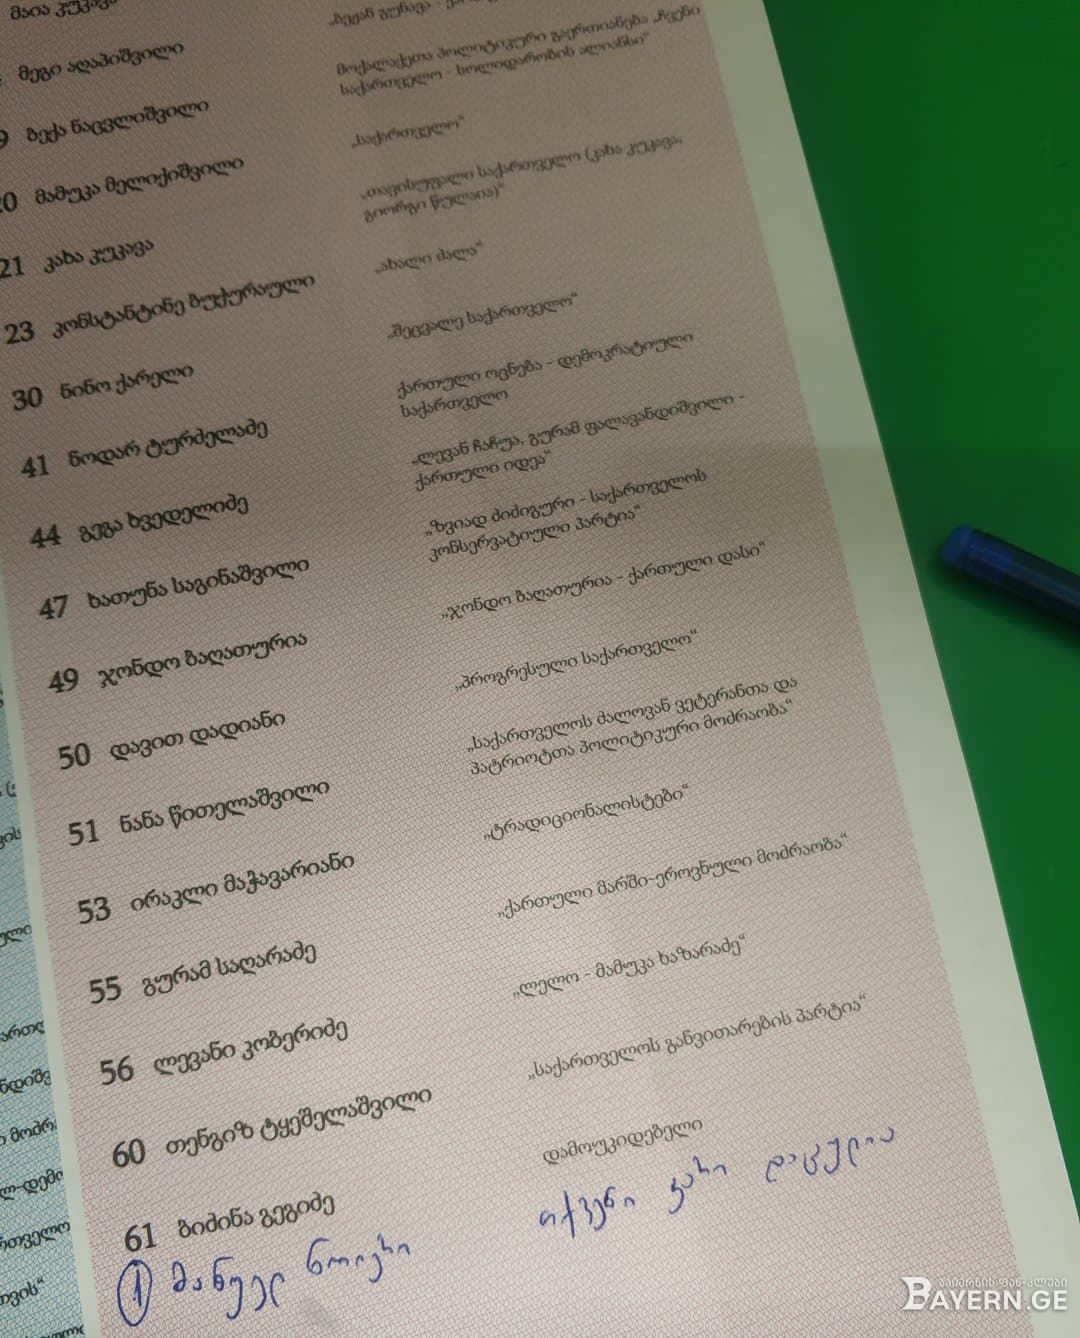 მაია
მეგი აღაპიშვილი „ბეჟან გუნავა -
9 ბექა ნაცვლიშვილი მოქალაქეთა პოლიტიკური გაერთიანება „ჩვენი
საქართველო - სოლიდარობის ალიანსი“
20 მამუკა მელიქიშვილი „საქართველო“
21 კახა კუკავა „თავისუფალი საქართველო (კახა კუკავა,
გიორგი წულაია)“
23 კონსტანტინე ბუქურაული „ახალი ძალა“
30 ნინო ქარელი „შეცვალე საქართველო“
41 ნოდარ ტურძელაძე ქართული ოცნება - დემოკრატიული
საქართველო
44 გეგა ხვედელიძე „ლევან ჩაჩუა, გურამ ფალავანდიშვილი -
ქართული იდეა“
47 ხათუნა საგინაშვილი „ზვიად ძიძიგური - საქართველოს
კონსერვატიული პარტია“
49 ჯონდო ბაღათურია „ჯონდო ბაღათურია - ქართული დასი“
50 დავით დადიანი „პროგრესული საქართველო“
51 ნანა წითელაშვილი „საქართველოს ძალოვან ვეტერანთა და
პატრიოტთა პოლიტიკური მოძრაობა“
53 ირაკლი მაჭავარიანი „ტრადიციონალისტები“
55 გურამ საღარაძე „ქართული მარში-ეროვნული მოძრაობა“
56 ლევანი კობერიძე „ლელო - მამუკა ხაზარაძე“
60 თენგიზ ტყეშელაშვილი „საქართველოს განვითარების პარტია“
61 ბიძინა გეგიძე დამოუკიდებელი
1 მანუელ ნოიერი თქვენი კარი დაცულია
ბაიერნის ფან-კლუბი
BAYERN.GE